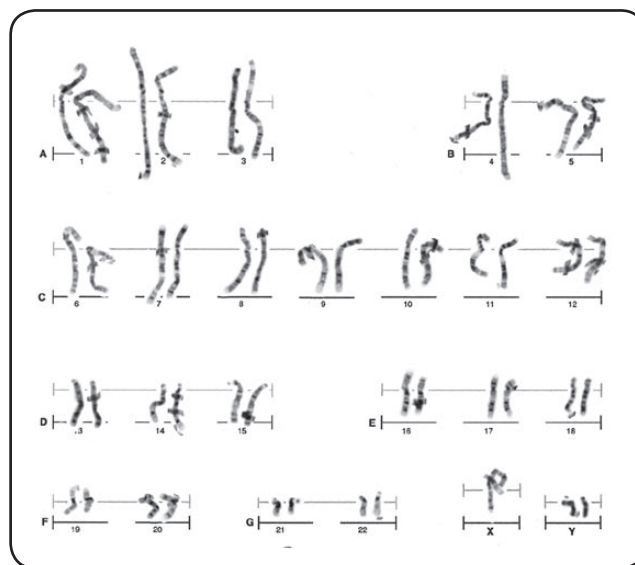 A 1 2 3 B 4 5
C 6 7 8 9 10 11 12
D 13 14 15 E 16 17 18
F 19 20 G 21 22 X Y